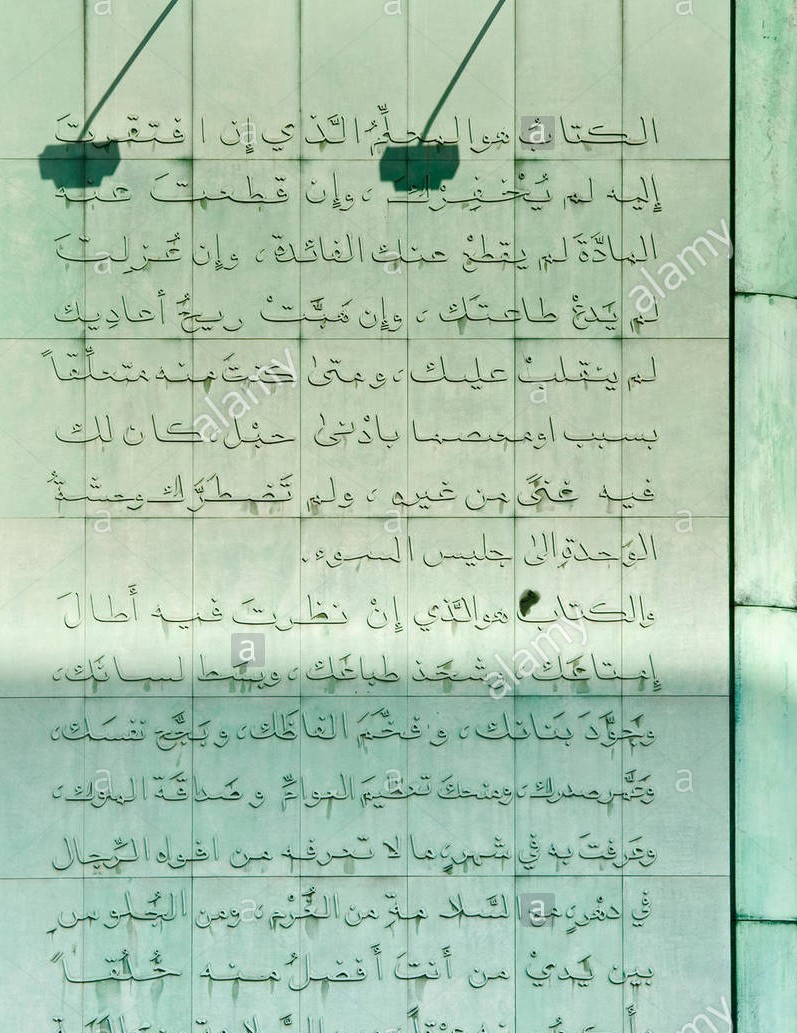 الكتابُ هو المعلِّمُ الَّذي إن افتقرتَ
إليه لم يُخْفِرْكَ، وإن قطعتَ عنه
المادَّةَ لم يقطعْ عنك الفائدةَ، وإن عُزلتَ
لم يَدَعْ طاعتَكَ، وإن هَبَّتْ ريحُ أعاديك
لم ينقلبْ عليك، ومتىٰ كنتَ منه متعلِّقاً
بسبب او معتصما بأدْنىٰ حبْل، كان لك
فيه غنىً من غيره، ولم تَضطَرَّك وحشةُ
الوَحدةِ الىٰ جليس السوء.
والكتاب هو الَّذي إنْ نظرتَ فيه أَطالَ
إمتاعَك، وشحَذ طباعَك، وبسَط لسانَك،
وجوَّدَ بَنانك، وفخَّمَ الفاظَك، وبَجَّح نفسَك،
وعَمَّر صدرك، ومنحكَ تعظيمَ العوامِّ وصَداقَةَ الملوك،
وعرفتَ به في شهرٍ، ما لا تعرفه من افواه الرِّجال
في دهْرٍ، مع السَّلامةِ من الغُرْم، ومن الجُلوس
بين يَديْ من أَنتَ أَفضلُ منه خُلُقاً